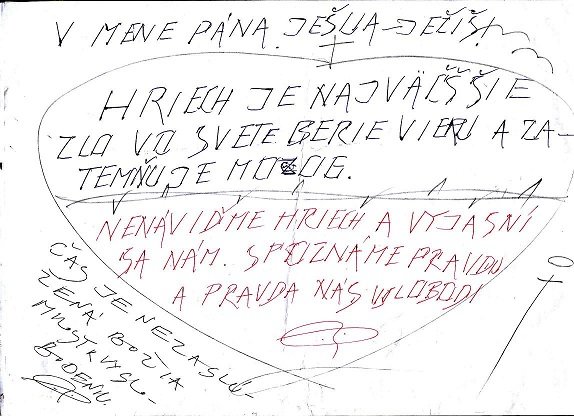 V MENE PÁNA JEŠUA-JEŽIŠ!
HRIECH JE NAJVÄČŠŠIE
ZLO VO SVETE BERIE VIERU A ZA-
TEMŇUJE MOZOG.
NENÁVIĎME HRIECH A VYJASNÍ
SA NÁM. SPOZNÁME PRAVDU
A PRAVDA NÁS VSLOBODÍ
ČAS JE NEZASLÚ-
ŽENÁ BOŽIA
MILOSŤ K VYSLO-
BODENIU.